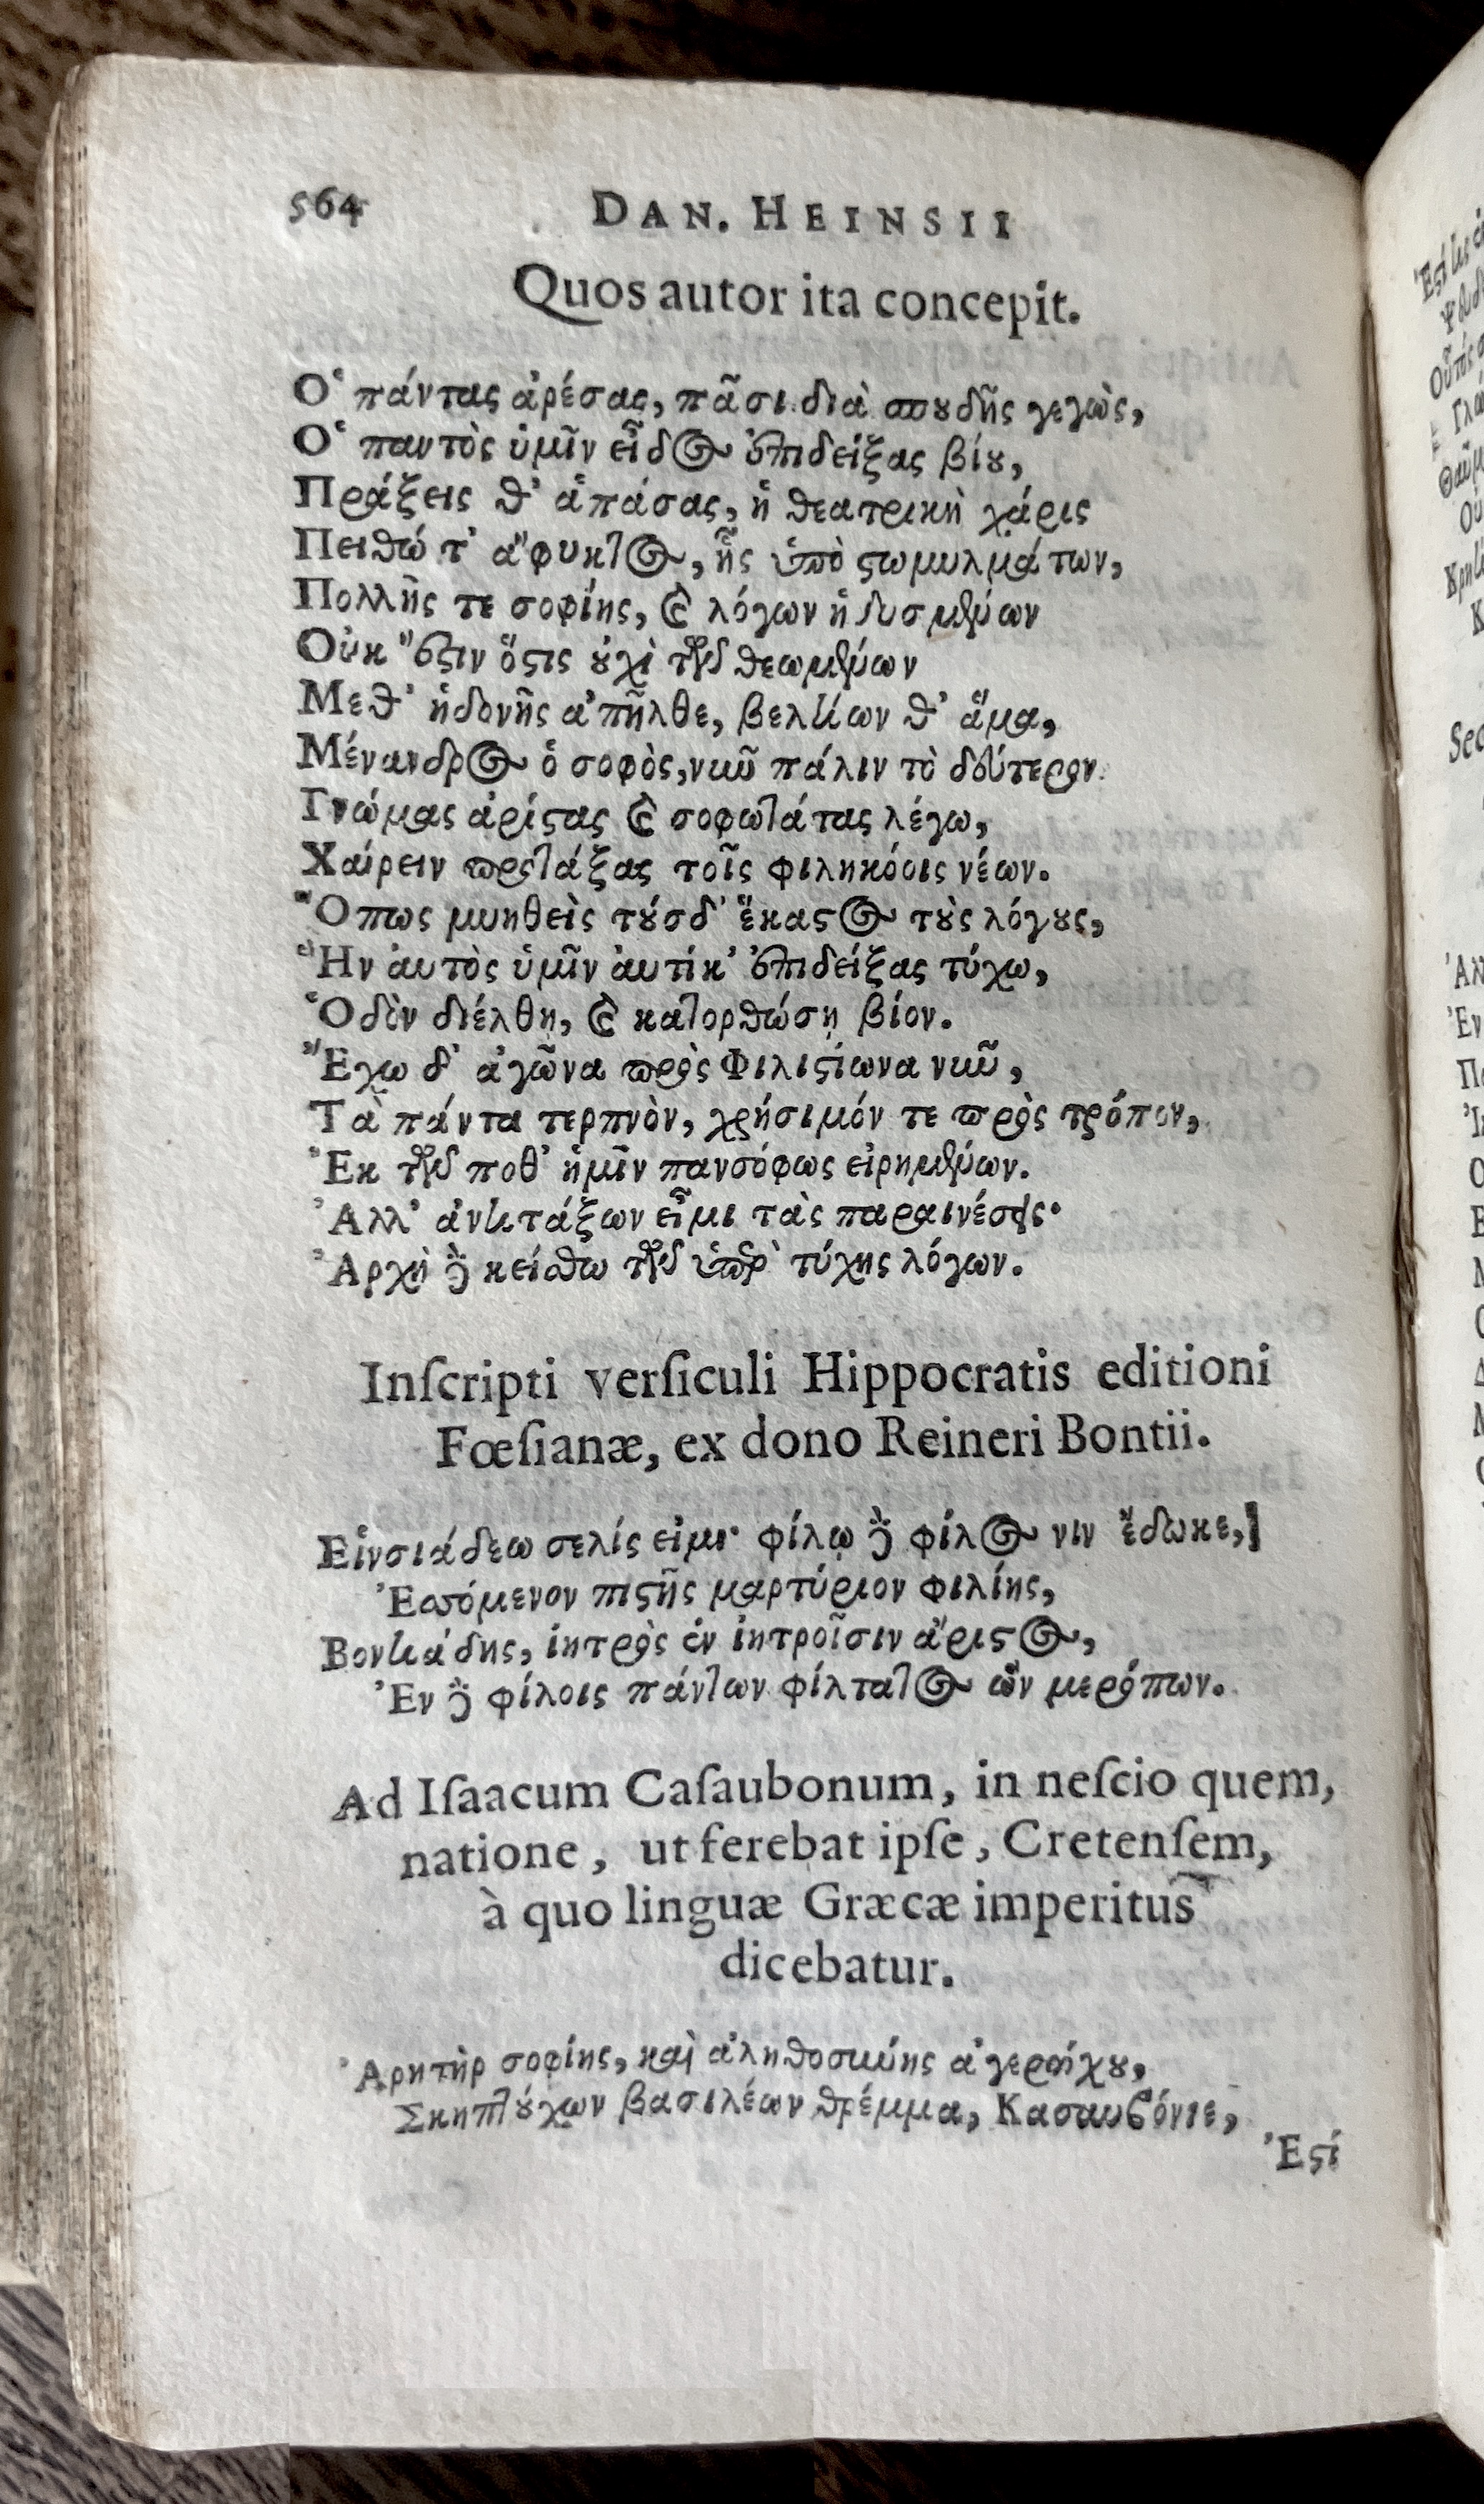 564 DAN. HEINSII
Quos autor ita concepit.
Ὁ πάντας ἀρέσας, πᾶσι διὰ σπουδῆς γεγὼς,
Ὁ παντὸς ὑμῖν εἶδος ἐπιδείξας βίου,
Πράξεις θ' ἁπάσας, ἡ θεατρικὴ χάρις
Πειθώ τ' ἄφυκτος, ἧς ὑπὸ στωμυλμάτων,
Πολλῆς τε σοφίης, καὶ λόγων ἡδυσμένων
Οὐκ ἔστιν ὅστις οὐχὶ τῶν θεωμένων
Μεθ' ἡδονῆς ἀπῆλθε, βελτίων θ' ἅμα,
Μένανδρος ὁ σοφὸς, νικῶ πάλιν τὸ δεύτερον.
Γνώμας ἀρίστας καὶ σοφωτάτας λέγω,
Χαίρειν προστάξας τοῖς φιληκόοις νέων.
Ὅπως μυηθεὶς τούσδ' ἕκαστος τοὺς λόγους,
Ἣν αὐτὸς ὑμῖν αὐτίκ' ἐπιδείξας τύχω,
Ὁδὸν διέλθῃ, καὶ κατορθώσῃ βίον.
Ἔχω δ' ἀγῶνα πρὸς Φιλιστίωνα νῦν,
Τὰ πάντα τερπνὸν, χρήσιμόν τε πρὸς τρόπον,
Ἐκ τῶν ποθ' ἡμῖν πανσόφως εἰρημένων.
Ἀλλ' ἀντιτάξων εἶμι τὰς παραινέσεις·
Ἀρχὴ δὲ κείσθω τῶν ὑπὲρ τύχης λόγων.
Inſcripti verſiculi Hippocratis editioni
Fœſianæ, ex dono Reineri Bontii.
Εἱνσιάδεω σελίς εἰμι· φίλῳ δὲ φίλος νιν ἔδωκε,
Ἐσσόμενον πιστῆς μαρτύριον φιλίης,
Βοντιάδης, ἰητρὸς ἐν ἰητροῖσιν ἄριστος,
Ἐν δὲ φίλοις πάντων φίλτατος ὢν μερόπων.
Ad Iſaacum Caſaubonum, in neſcio quem,
natione, ut ferebat ipſe, Cretenſem,
à quo linguæ Græcæ imperitus
dicebatur.
Ἀρητὴρ σοφίης, καὶ ἀληθοσύνης ἀγερώχου,
Σκηπτούχων βασιλέων θρέμμα, Κασαυβόνιε,
Ἐστί